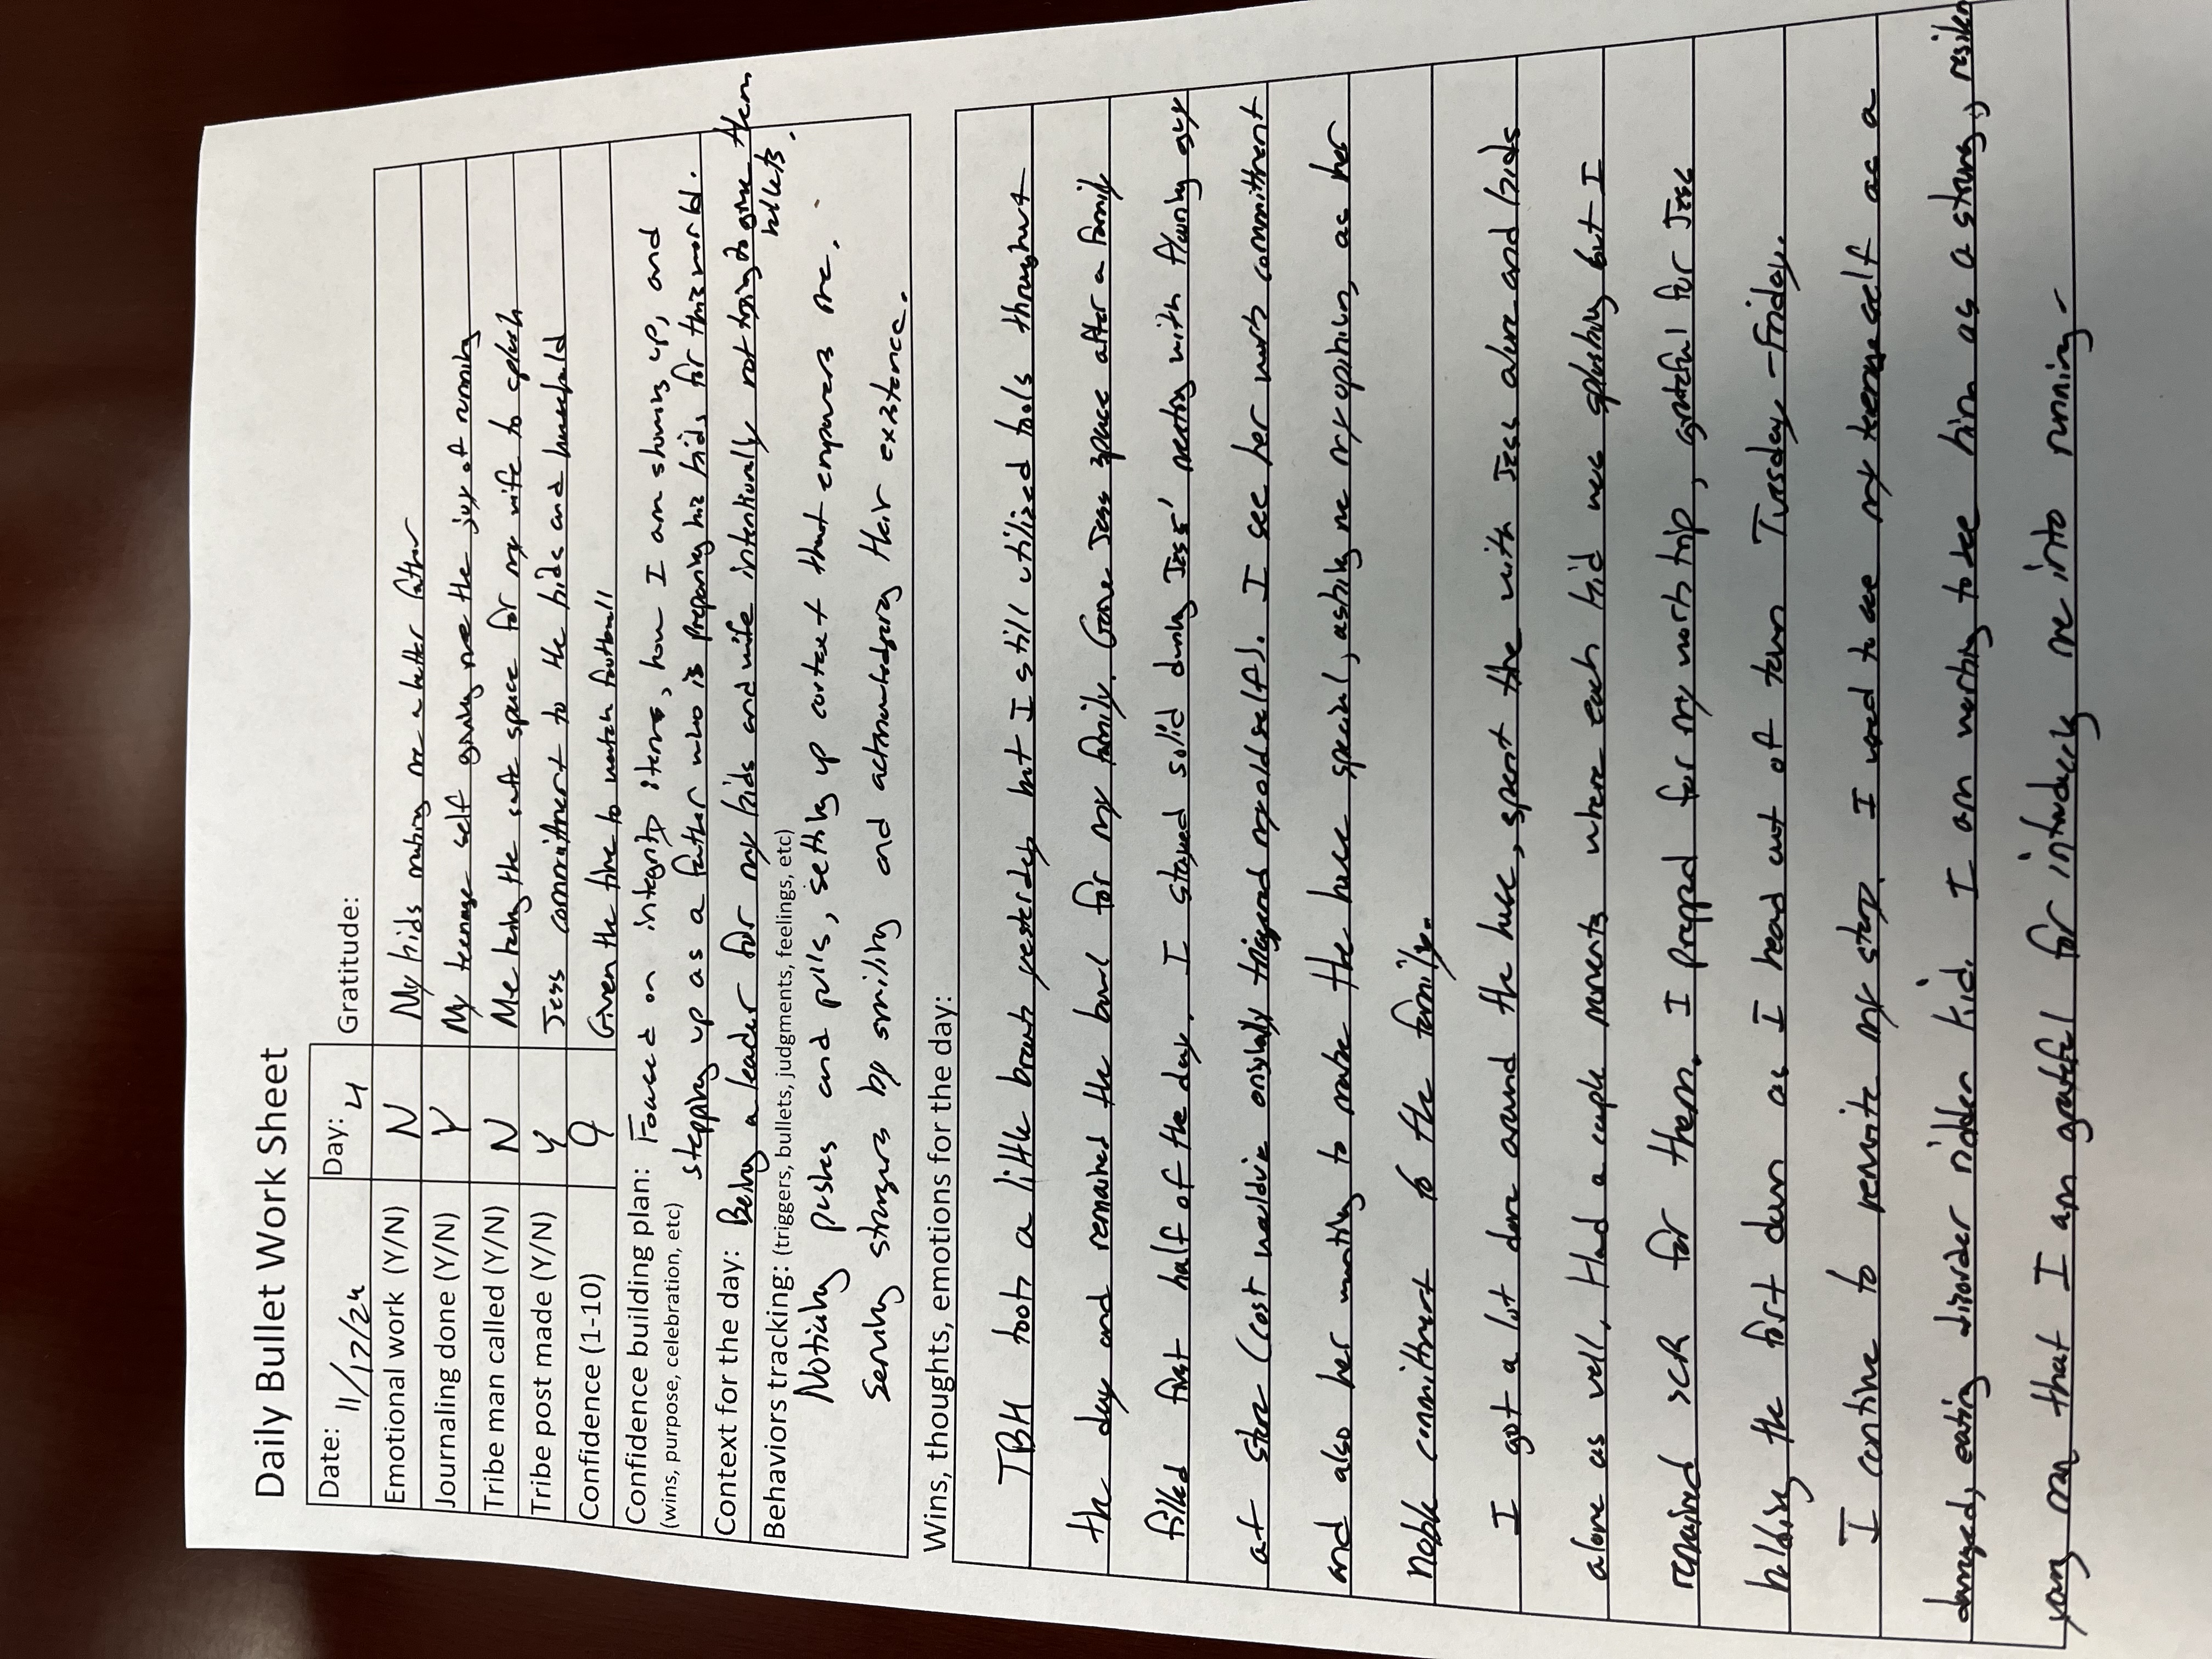 Daily Bullet Work Sheet
Date: 11/17/24 Day: 4 Gratitude:
Emotional work (Y/N) N My kids making me a better father
Journaling done (Y/N) Y My teenage self giving me the joy of running
Tribe man called (Y/N) N Me being the safe space for my wife to splash
Tribe post made (Y/N) Y Jess commitment to the kids and household
Confidence (1-10) 9 Given the time to watch football
Confidence building plan: Focused on integrity items, how I am showing up, and
(wins, purpose, celebration, etc) stepping up as a father who is preparing his kids for this world.
Context for the day: Being a leader for my kids and wife intentionally not trying to give them
bullets.
Behaviors tracking: (triggers, bullets, judgments, feelings, etc)
Noticing pushes and pulls, setting up context that empowers me.
Serving strangers by smiling and acknowledging their existence.
Wins, thoughts, emotions for the day:
TBH took a little break yesterday but I still utilized tools throughout
the day and remained the bowl for my family. Gave Jess space after a family
filled first half of the day. I stayed solid during Jess' nesting with flooring guy
at store (cost would've originally triggered my old self). I see her work commitment
and also her wanting to make the house special, asking me my opinion, as her
noble commitment to the family.
I got a lot done around the house, spent time with Jess alone and kids
alone as well. Had a couple moments where each kid was splashing but I
remained SCR for them. I prepped for my work trip, grateful for Jess
holding the fort down as I head out of town Tuesday - Friday.
I continue to rewrite my story. I used to see my teenage self as a
damaged, eating disorder ridden kid. I am working to see him as a strong, resilien
young man that I am grateful for introducing me into running -